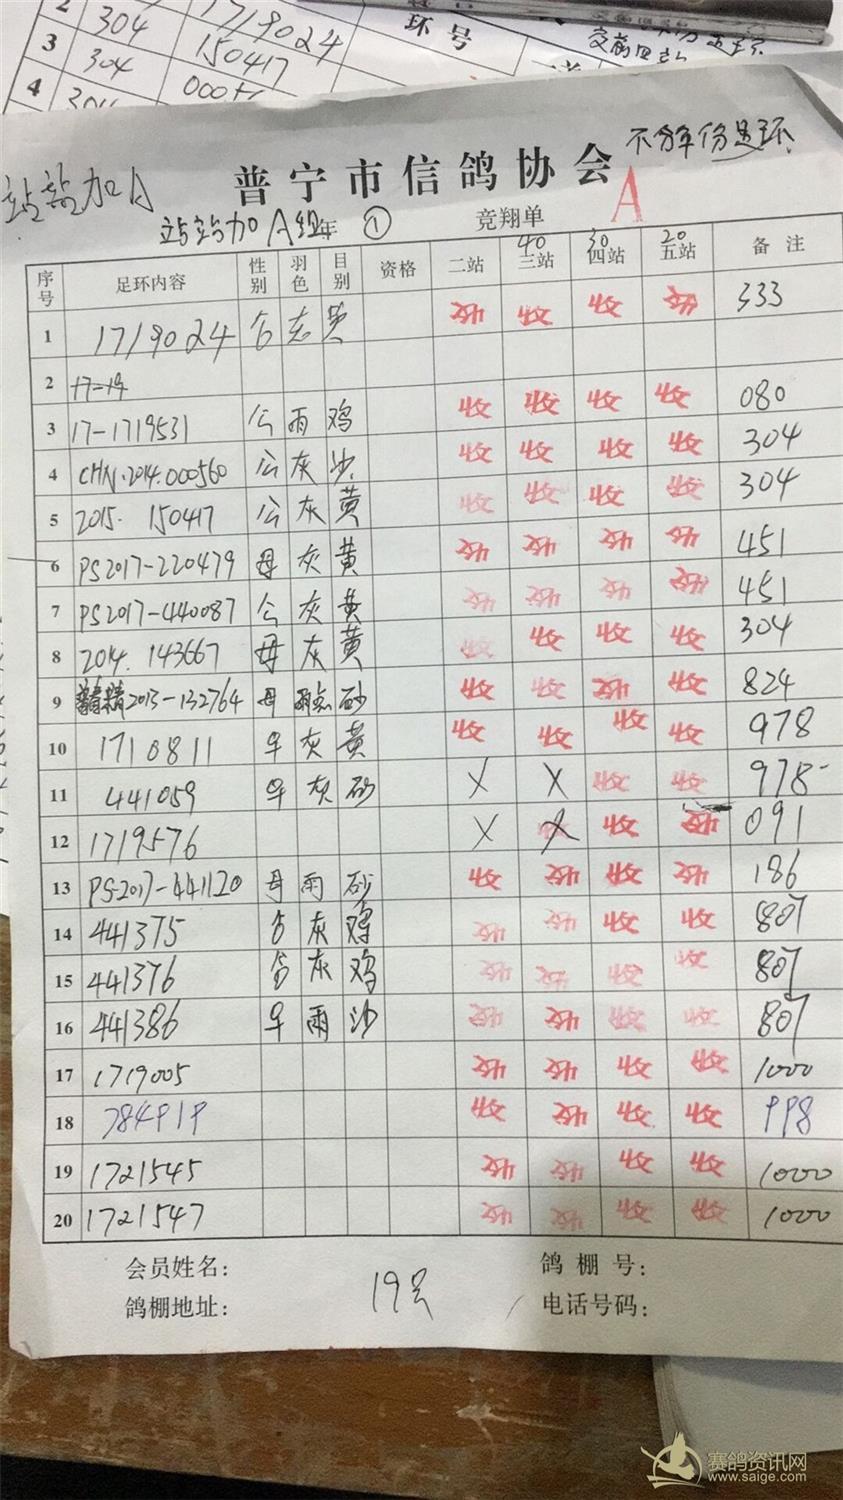 304 1719024
3 304 150417
4 304 000
环号
不分年份足环
站站加A 普宁市信鸽协会
A
站站加A组年 ① 竞翔单
40 30 20
序号 足环内容 性别 羽色 目别 资格 二站 三站 四站 五站 备注
1 1719024 收 收 收 收 333
2 17-19
3 17-1719531 公 雨 鸡 收 收 收 收 080
4 CHN.2014.000560 公 灰 沙 收 收 收 收 304
5 2015. 150417 公 灰 黄 收 收 收 收 304
6 PS2017-220479 母 灰 黄 收 收 收 收 451
7 PS2017-440087 公 灰 黄 收 收 收 收 451
8 2014. 143667 母 灰 黄 收 收 收 收 304
9 2013-132764 母 雨点 砂 收 收 收 收 824
10 1710811 灰 黄 收 收 收 收 978
11 441059 灰 砂 X X 收 收 978-
12 1719576 X X 收 收 091
13 PS-2017-441120 母 雨 砂 收 收 收 收 186
14 441375 灰 鸡 收 收 收 收 807
15 441376 灰 鸡 收 收 收 收 807
16 441386 雨 沙 收 收 收 收 807
17 1719005 收 收 收 收 1000
18 784919 收 收 收 收 998
19 1721545 收 收 收 收 1000
20 1721547 收 收 收 收 1000
会员姓名： 鸽棚号：
鸽棚地址： 19号 电话号码：
赛鸽资讯网
www.saige.com